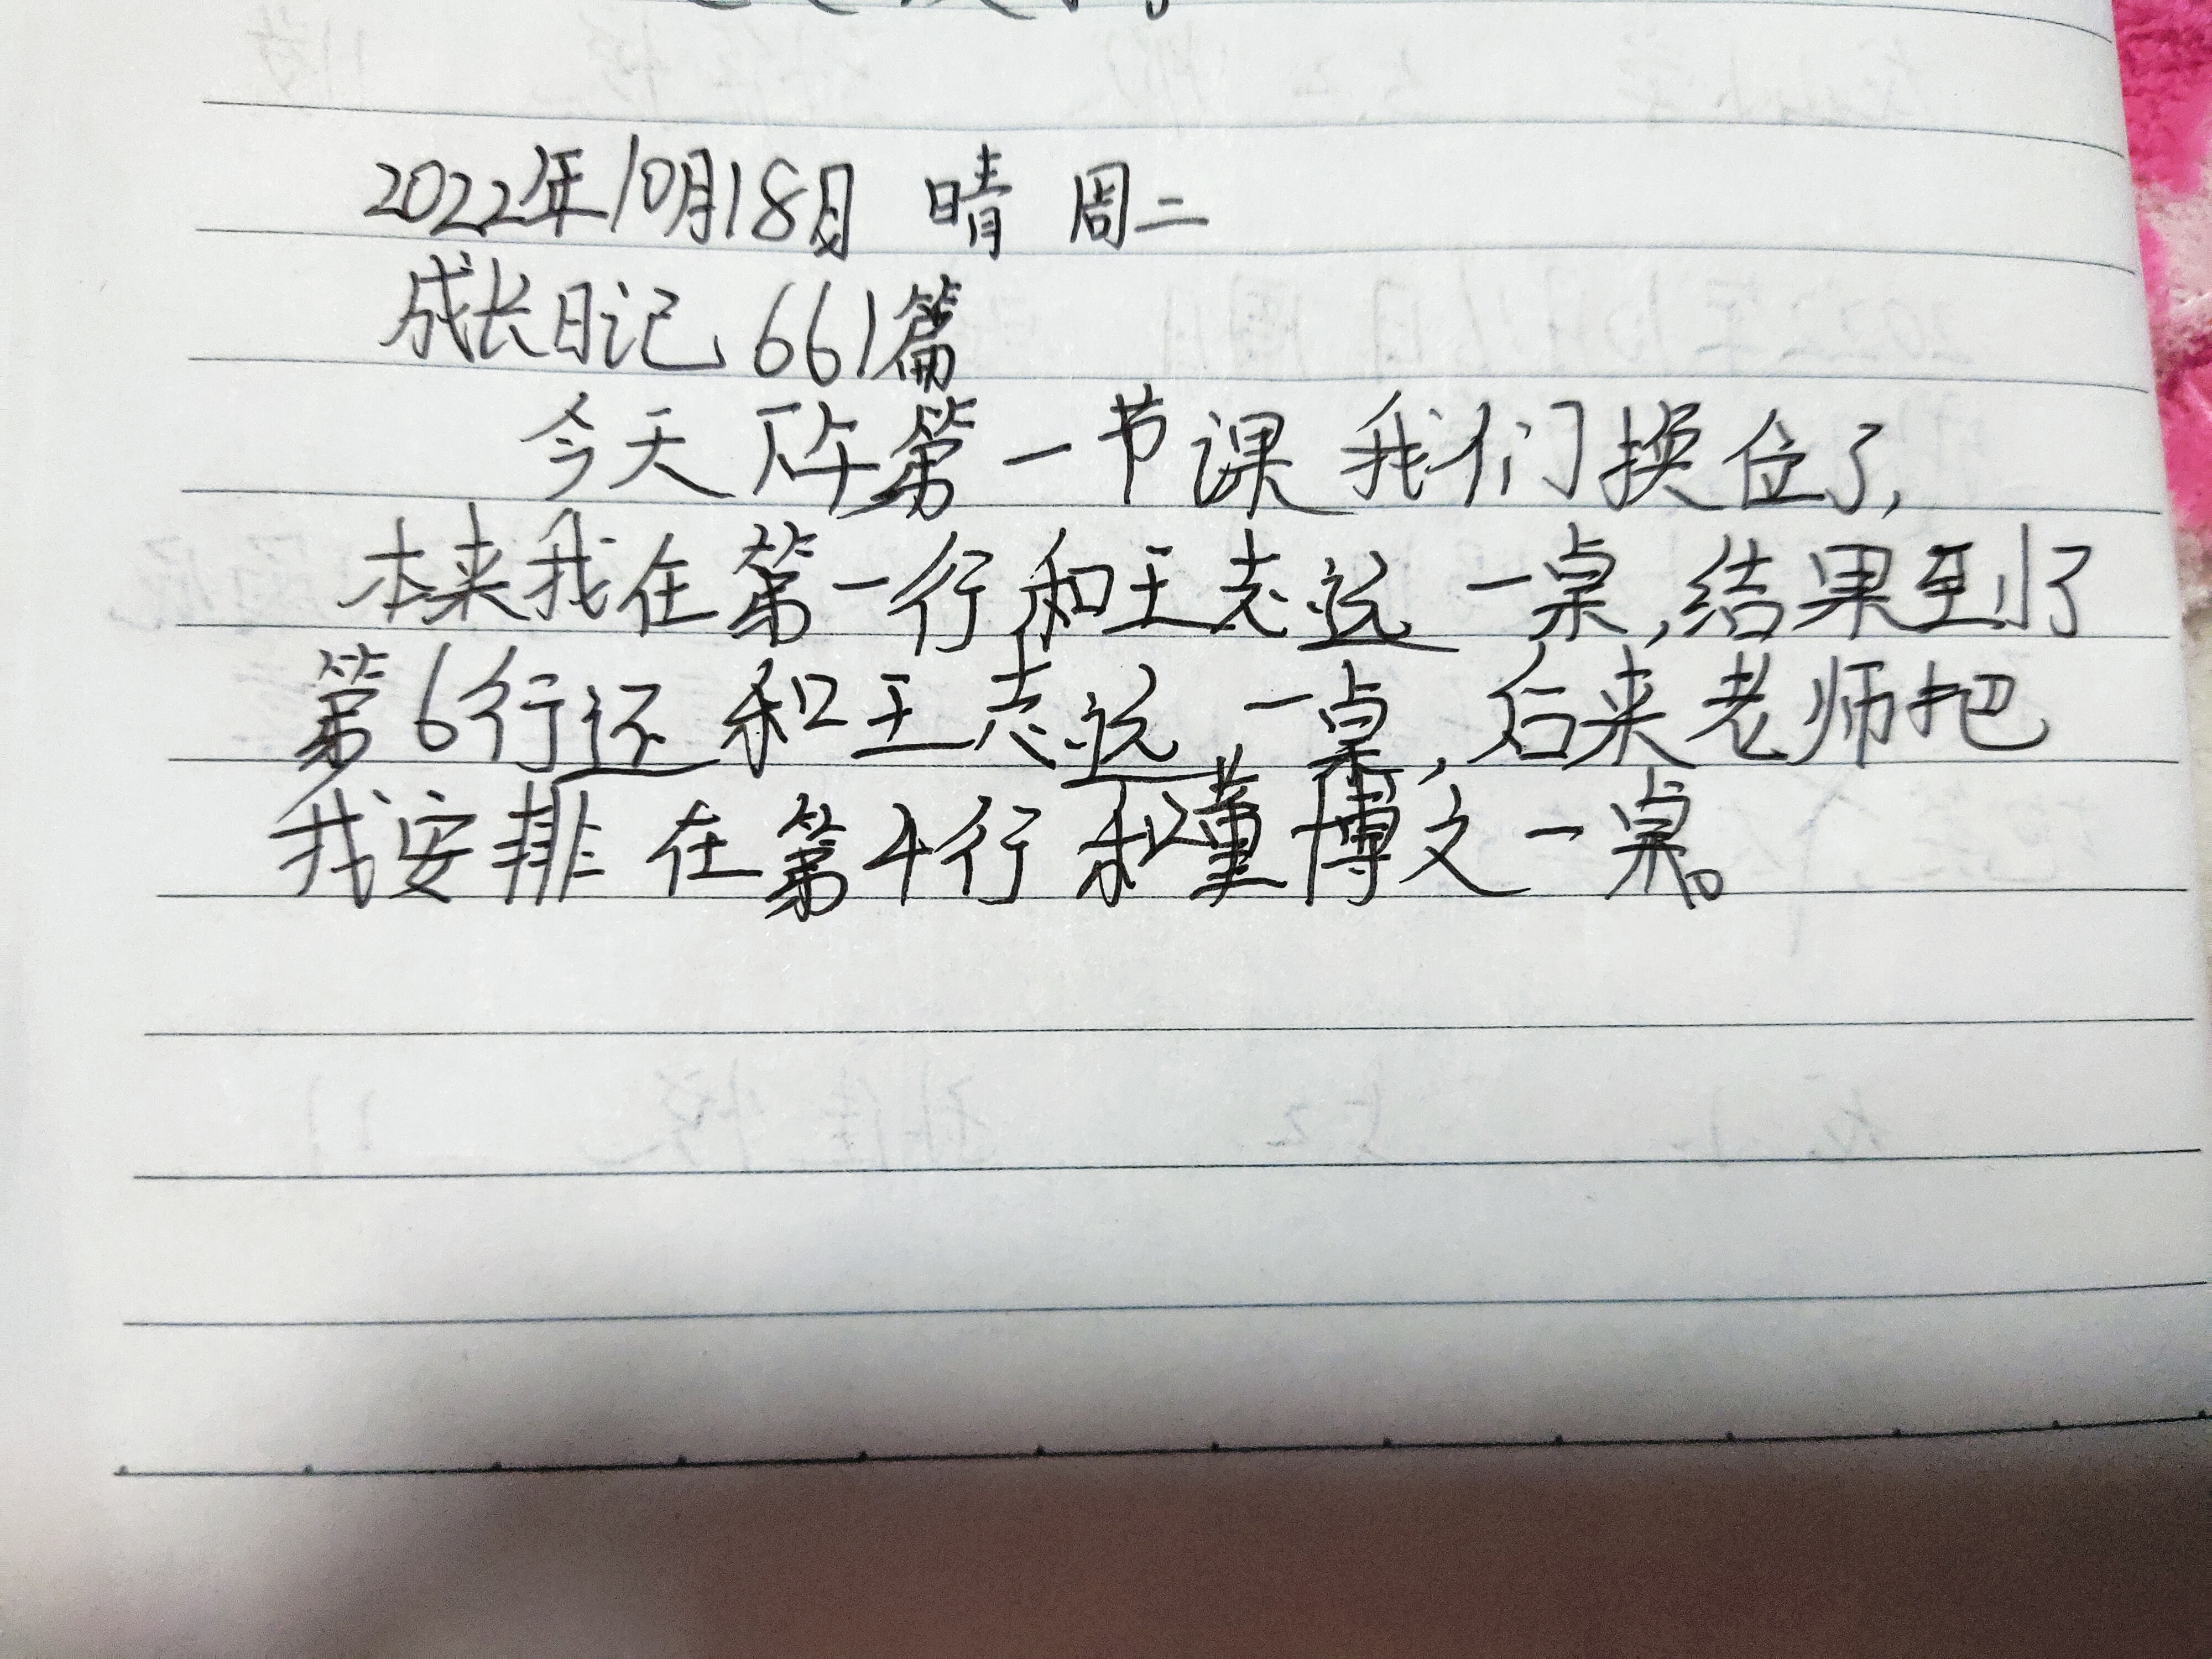 2022年10月18日 晴 周二
成长日记 661篇
今天下午第一节课我们换位了,
本来我在第一行和王志远一桌,结果到了
第6行还和王志远一桌,后来老师把
我安排在第4行和董博文一桌。